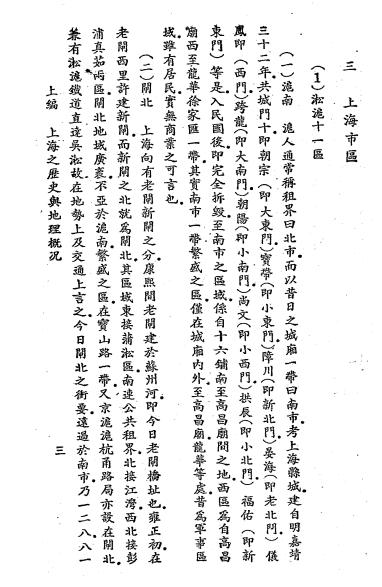 三　上海市區
(1)淞滬十一區
(一)滬南　滬人通常稱租界曰北市，而以昔日之城廂一帶曰南市。考上海縣城建自明嘉靖
三十二年，共城門十，即朝宗(即大東門)寶帶(即小東門)障川(即新北門)晏海(即老北門)儀
鳳即(西門)跨龍(即大南門)朝陽(即小南門)尚文(即小西門)拱辰(即小北門)福佑(即新
東門)等是。入民國後，即完全拆毀。至南市之區域，係自十六鋪南至高昌廟間之地。西區爲自高昌
廟西至龍華徐家匯一帶。其實南市一帶繁盛之區，僅在城廂內外，至高昌廟龍華等處，昔爲軍事區
域，雖有居民，實無商業之可言也。
(二)閘北　上海向有老閘新閘之分，康熙間老閘建於蘇州河，即今日老閘橋址也。雍正初，在
老閘西里許建新閘，而新閘之北，就爲閘北。其區域東接蒲淞區，南連公共租界，北接江灣，西北接彭
浦真茹兩區。閘北地域廣袤，不亞於滬南，繁盛之區，在寶山路一帶，又京滬滬杭甬路局，亦設在閘北，
兼有淞滬鐵道，直達吳淞，故在地勢上及交通上言之，今日閘北之衝要遠過於南市。乃一二八八一
上編　上海之歷史與地理概況
三